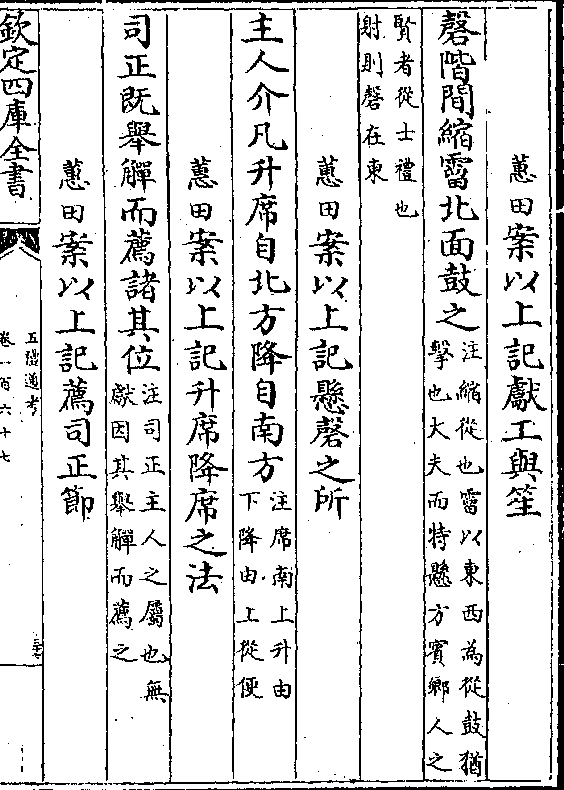 蕙田案以上記獻工與笙
磬階間縮霤北面鼓之注縮從也霤以東西為從鼓猶
擊也大夫而特懸方賓鄉人之
賢者從士禮也
射則磬在東
蕙田案以上記懸磬之所
主人介凡升席自北方降自南方注席南上升由
下降由上從便
蕙田案以上記升席降席之法
司正既舉觶而薦諸其位注司正主人之屬也無
獻因其舉觶而薦之
蕙田案以上記薦司正節
欽定四庫全書
五禮通考
卷一百六十七